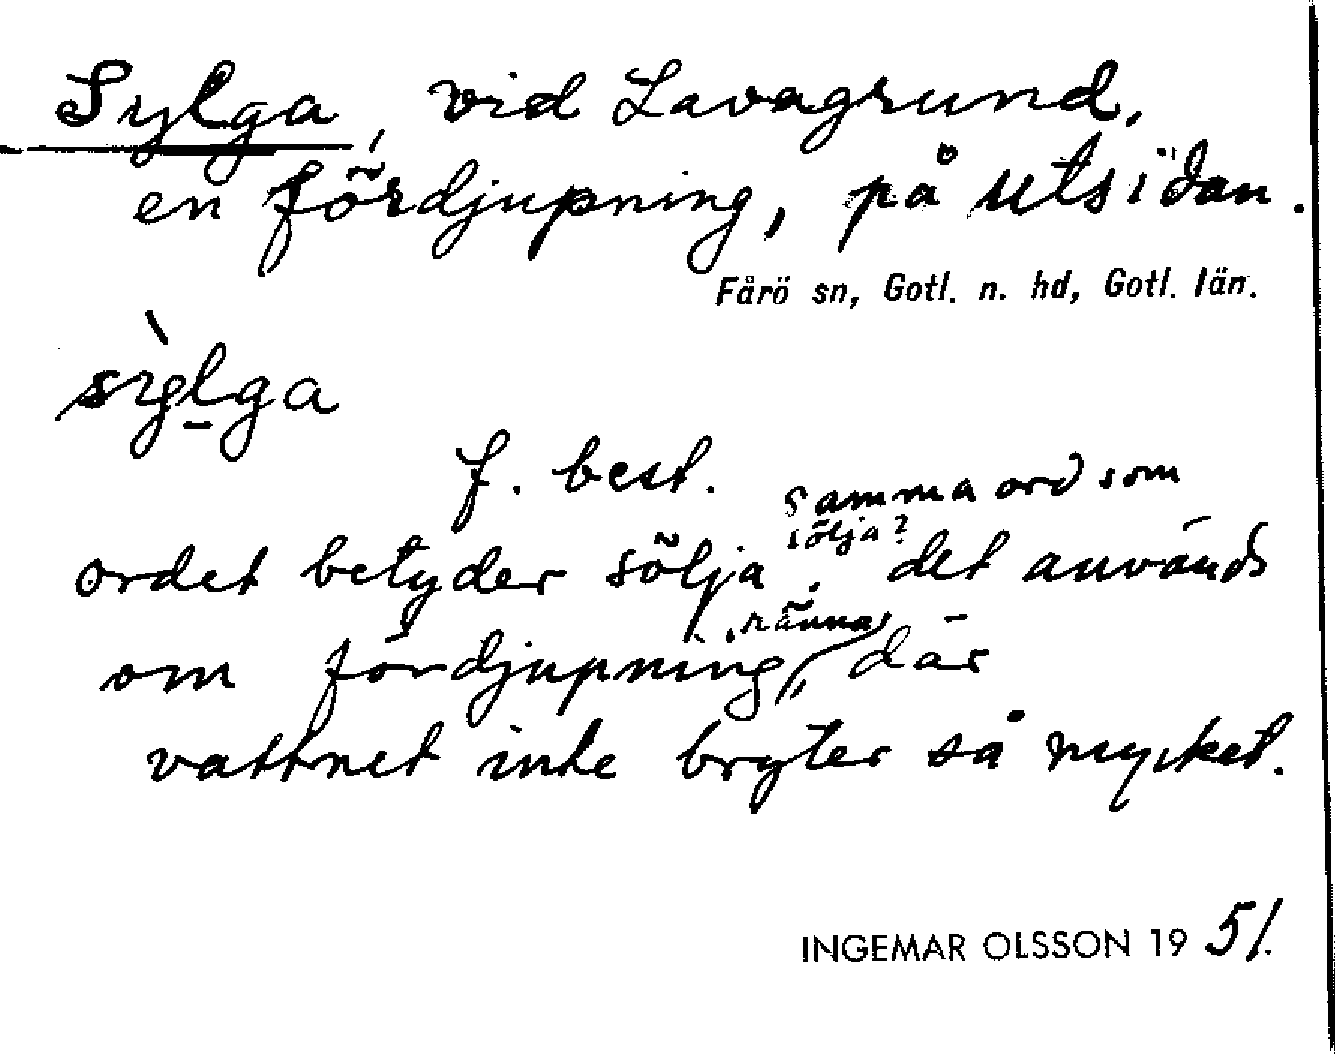 Sylga, vid Lavagrund,
en fördjupning, på utsidan.
Fårö sn, Gotl. n. hd, Gotl. län.
sỳlga
f. best.
samma ord som
sölja?
ordet betyder sölja, det används
ränna,
om fördjupning, där
vattnet inte bryter så mycket.
INGEMAR OLSSON 1951.